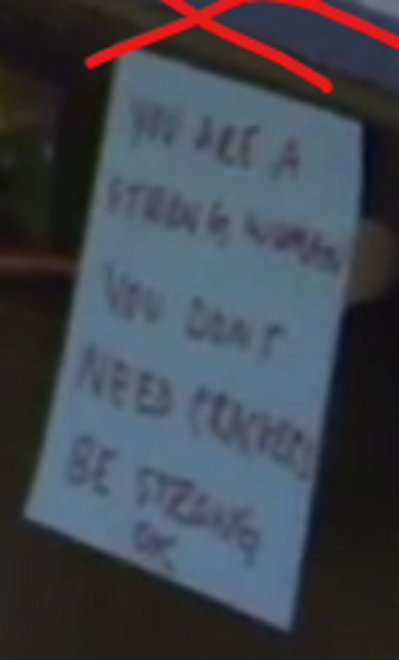 YOU ARE A
STRONG WOMAN
YOU DONT
NEED CRACKERS
BE STRONG
OK